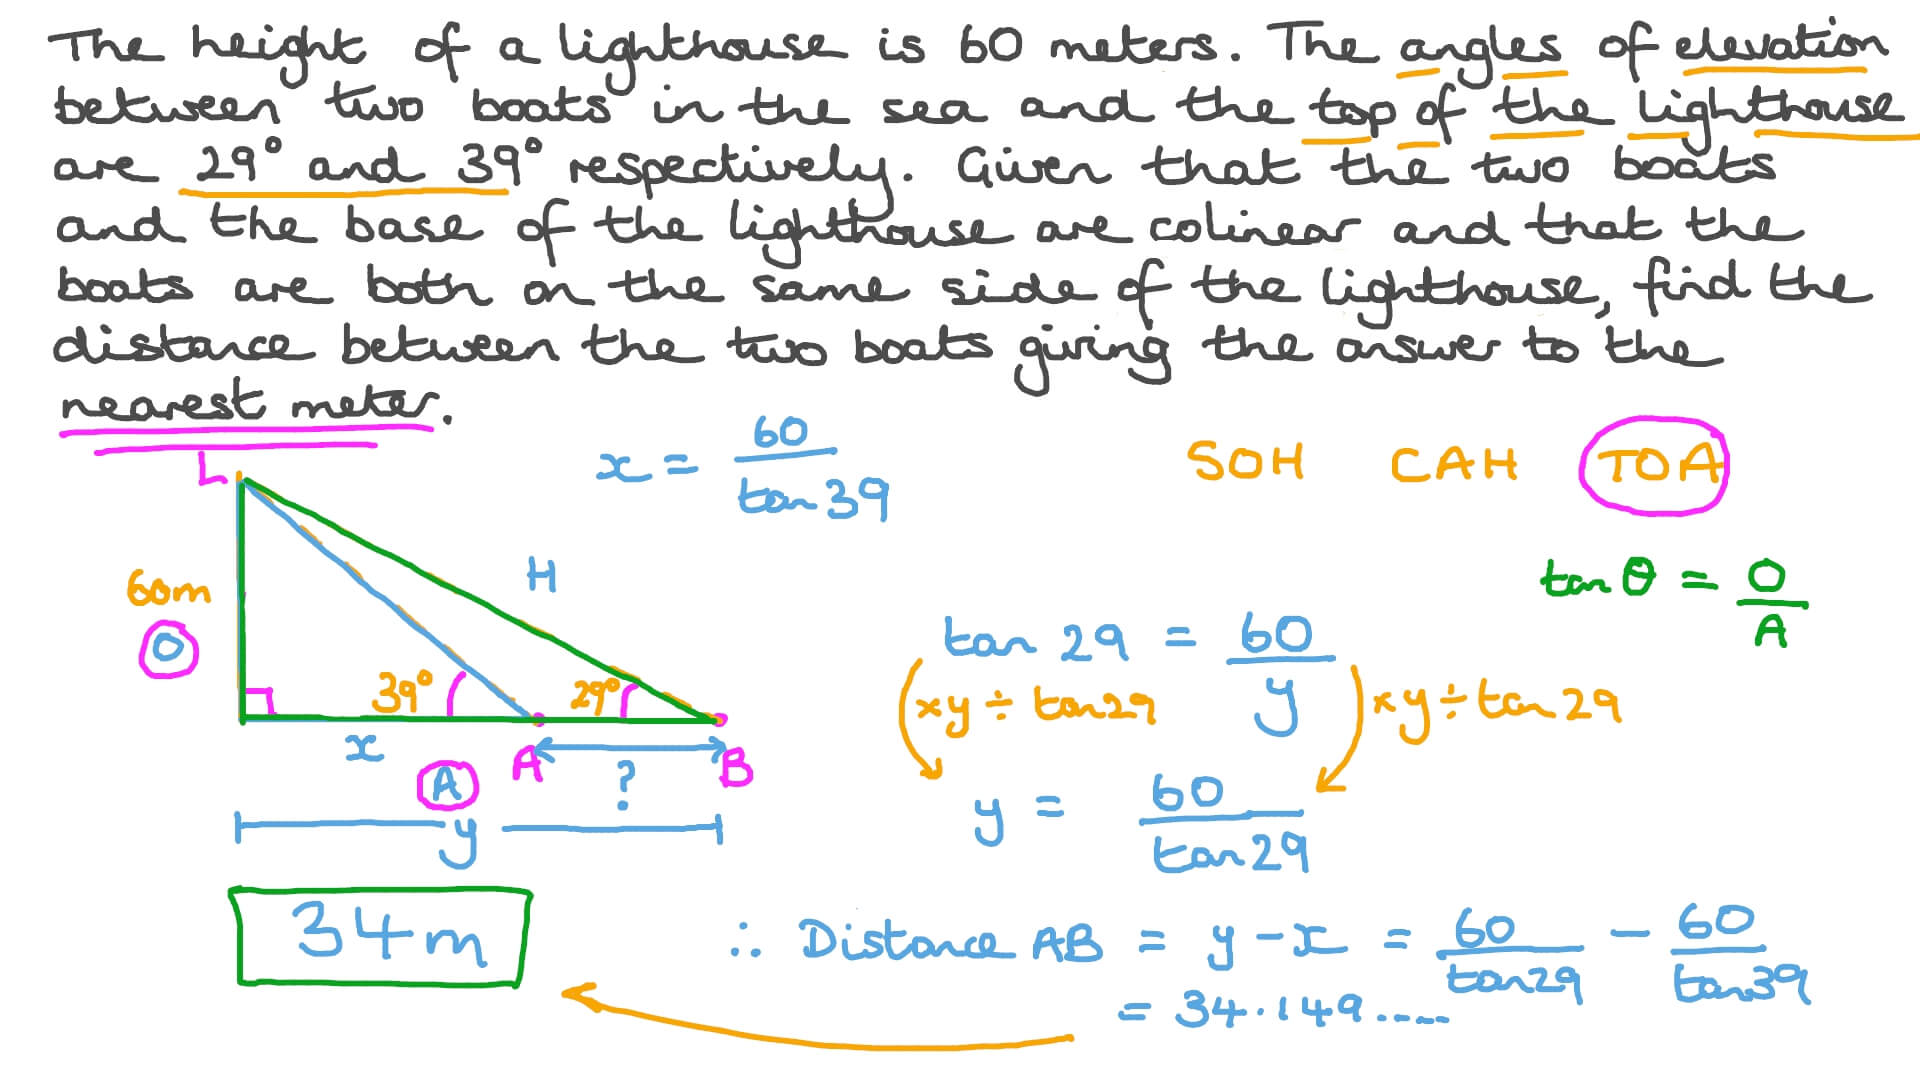 The height of a lighthouse is 60 meters. The angles of elevation
between two boats in the sea and the top of the lighthouse
are 29° and 39° respectively. Given that the two boats
and the base of the lighthouse are colinear and that the
boats are both on the same side of the lighthouse, find the
distance between the two boats giving the answer to the
nearest meter.
x = 60 / tan 39
SOH CAH TOA
L
60m
O
H
39°
29°
x
A
A
B
?
y
tan θ = O / A
tan 29 = 60 / y
xy ÷ tan29
xy ÷ tan 29
y = 60 / tan 29
34m
∴ Distance AB = y - x = 60 / tan29 - 60 / tan39
= 34.149.....